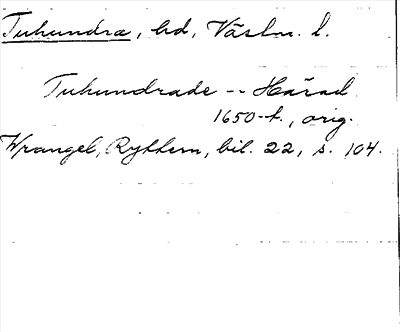 Tuhundra, hd, Västm. l.
Tuhundrade -- Härad
1650-t., orig.
Wrangel, Ryttern, bil. 22, s. 104.